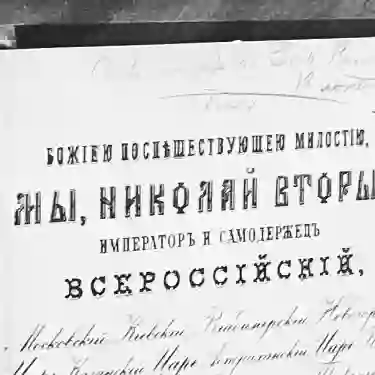 БОЖІЕЮ ПОСПѢШЕСТВУЮЩЕЮ МИЛОСТІЮ,
МЫ, НИКОЛАЙ ВТОРЫ
ИМПЕРАТОРЪ И САМОДЕРЖЕЦЪ
ВСЕРОССІЙСКІЙ,
Московскій Кіевскій Владимірскій Новгор
Царь Казанскій Царь Астраханскій Царь